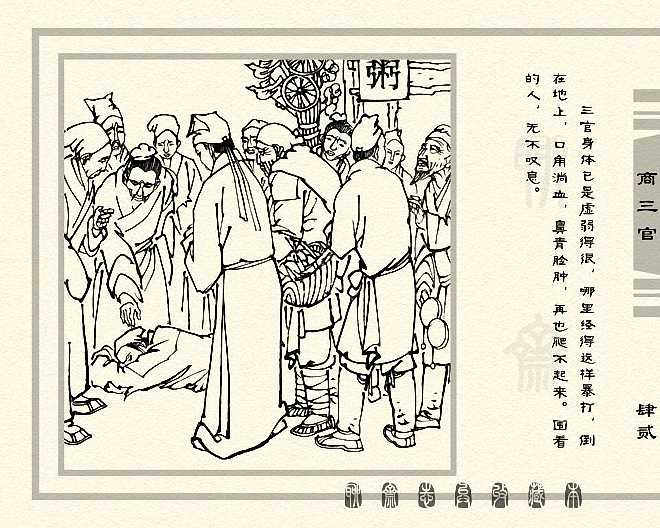 粥
三官身体已是虚弱得很，哪里经得这样暴打，倒
在地上，口角淌血，鼻青脸肿，再也爬不起来。围看
的人，无不叹息。
商三官
肆贰